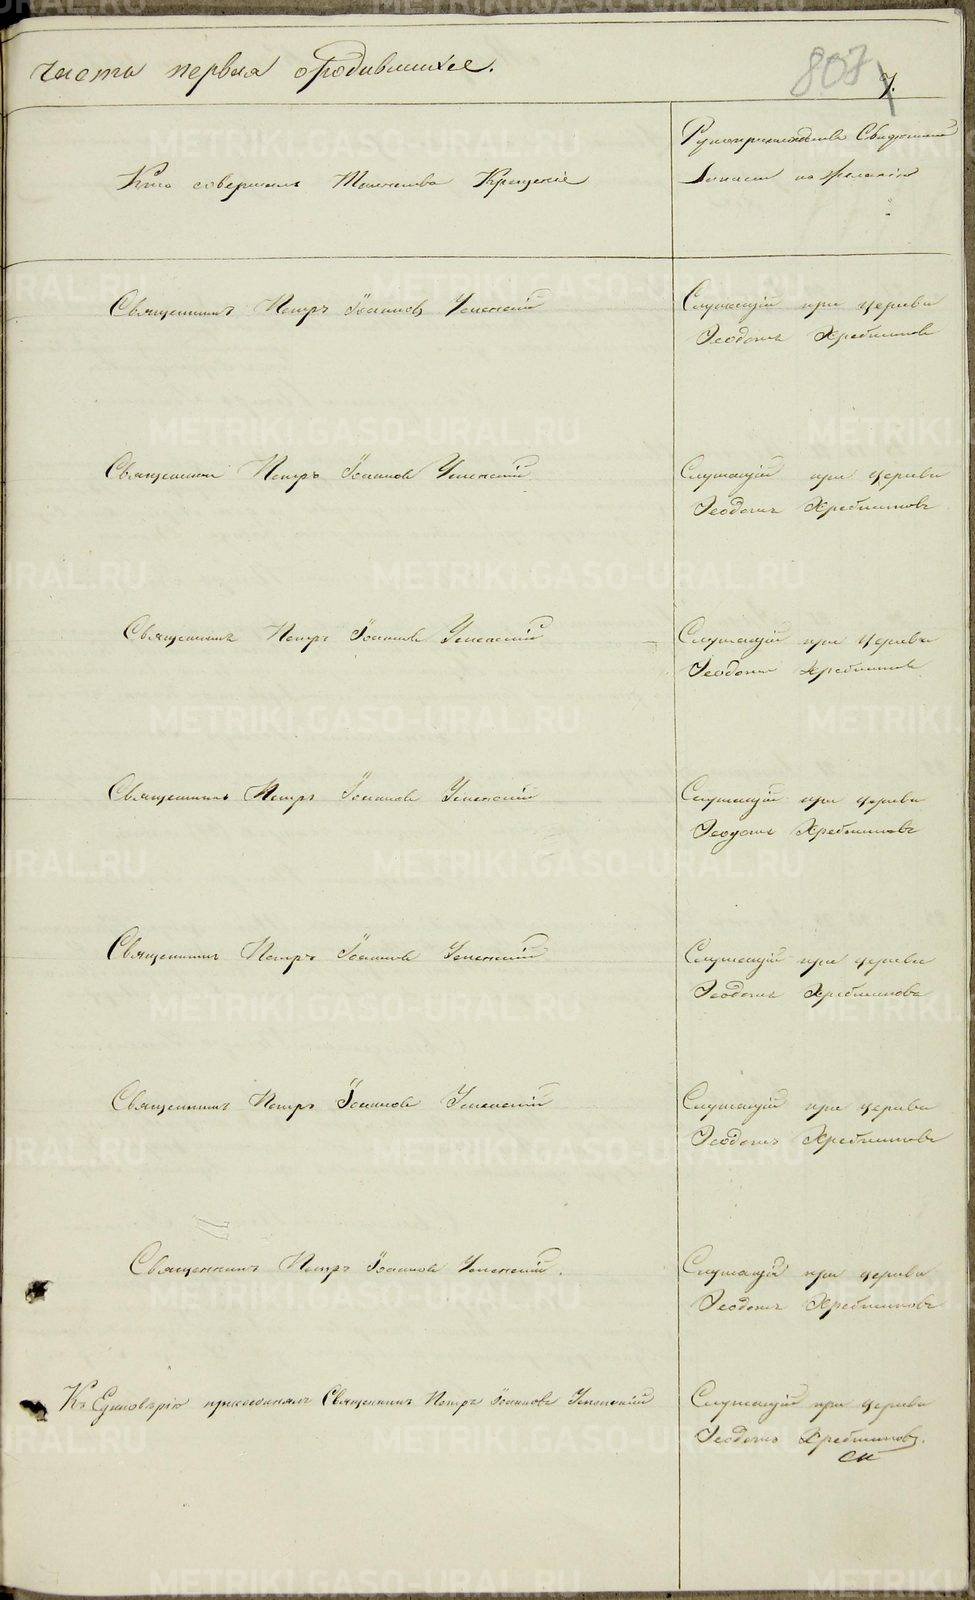 часть первая о родившихся.
807
7.
Кто совершалъ Таинство Крещенiе
Рукоприкладства Свидетелей
записи по желанiю
Священникъ Петръ Iоанновъ Успенскiй
Служащiй при церкви
Феодотъ Хребтиковъ
Священникъ Петръ Iоанновъ Успенскiй
Служащiй при церкви
Феодотъ Хребтиковъ
Священникъ Петръ Iоанновъ Успенскiй
Служащiй при церкви
Феодотъ Хребтиковъ
Священникъ Петръ Iоанновъ Успенскiй
Служащiй при церкви
Феодотъ Хребтиковъ
Священникъ Петръ Iоанновъ Успенскiй
Служащiй при церкви
Феодотъ Хребтиковъ
Священникъ Петръ Iоанновъ Успенскiй
Служащiй при церкви
Феодотъ Хребтиковъ
Священникъ Петръ Iоанновъ Успенскiй.
Служащiй при церкви
Феодотъ Хребтиковъ
Къ Единоверiю присоединялъ Священникъ Петръ Iоанновъ Успенскiй
Служащiй при церкви
Феодотъ Хребтиковъ.
METRIKI.GASO-URAL.RU